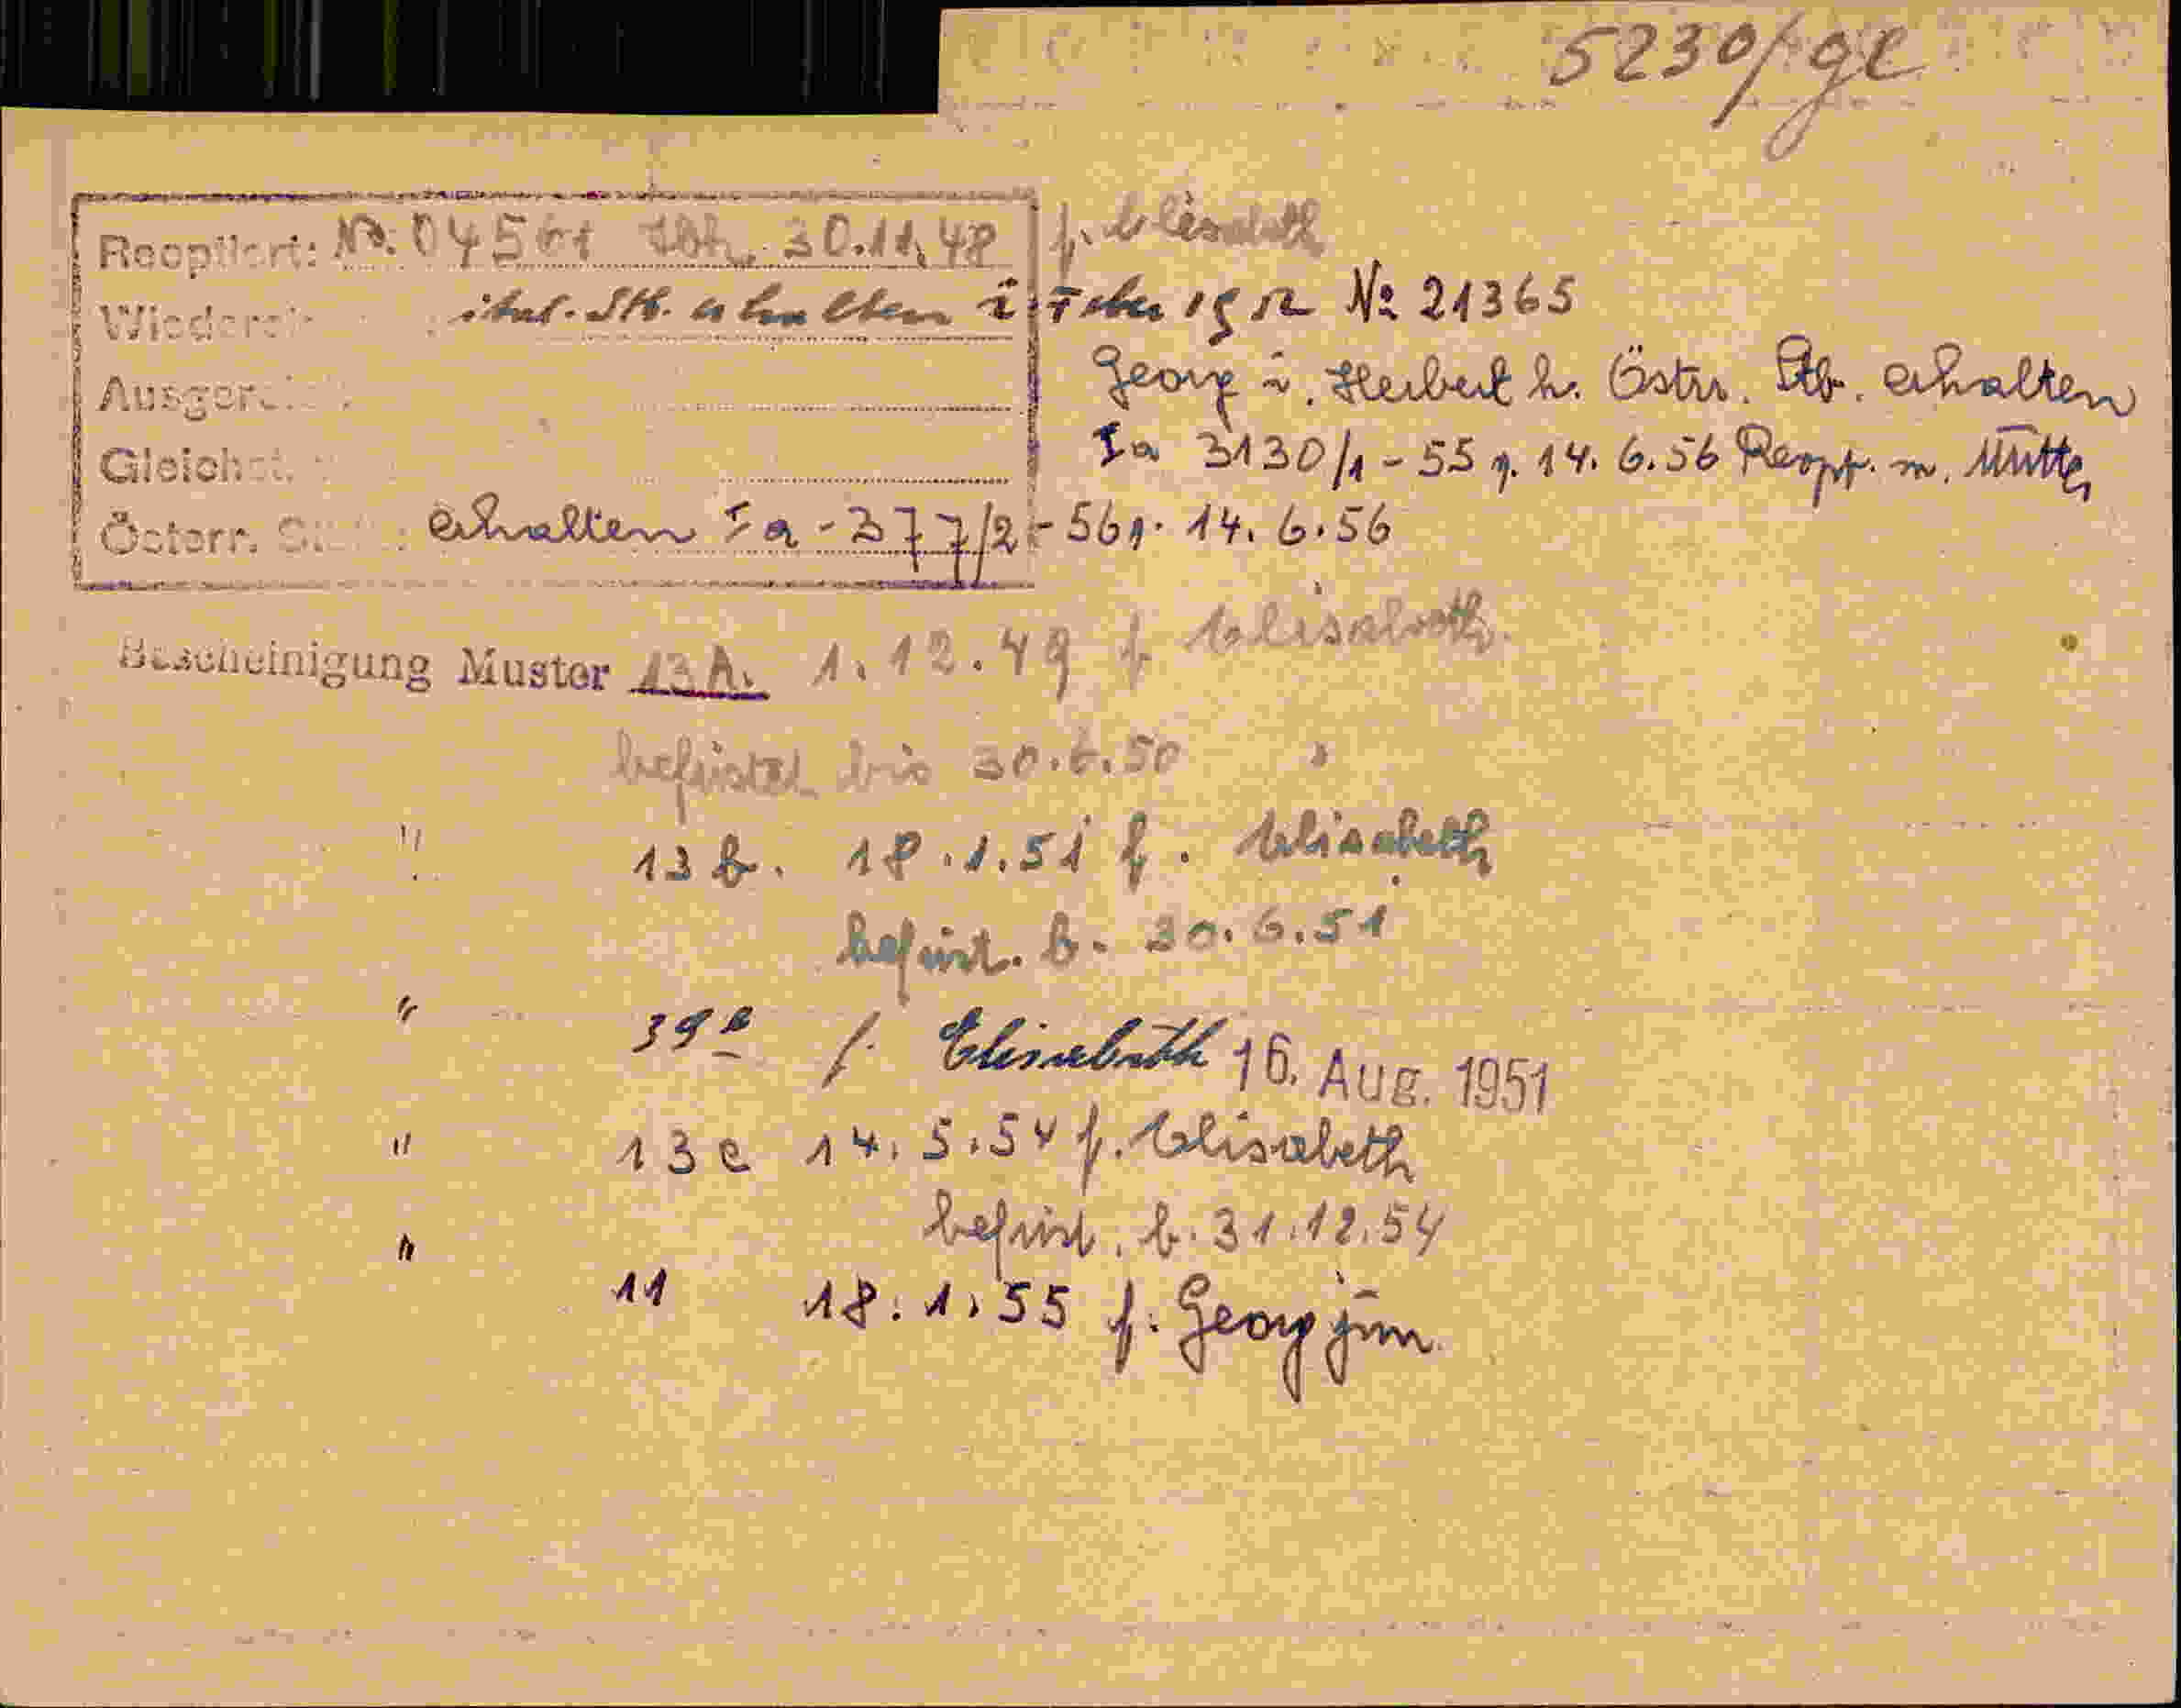 5230/ge
Reoptiert: No. 04561 30.11.48 f. Elisabeth
ital. Stb. erhalten i. Feber 1952 No 21365
Georg u. Herbert h. Östr. Stb. erhalten
Ia 3130/1-55 v. 14.6.56 Reopt. m. Mutter
Österr. erhalten Ia-377/2-56 v. 14.6.56
Bescheinigung Muster 13A. 1.12.49 f Elisabeth
befristet bis 30.6.50 "
" 13 b. 18.1.51 f. Elisabeth
befrist. b. 30.6.51
" 39a f. Elisabeth 16. Aug. 1951
" 13 c 14.5.54 f. Elisabeth
befrist. b. 31.12.54
" 11 18.1.55 f. Georg jun.